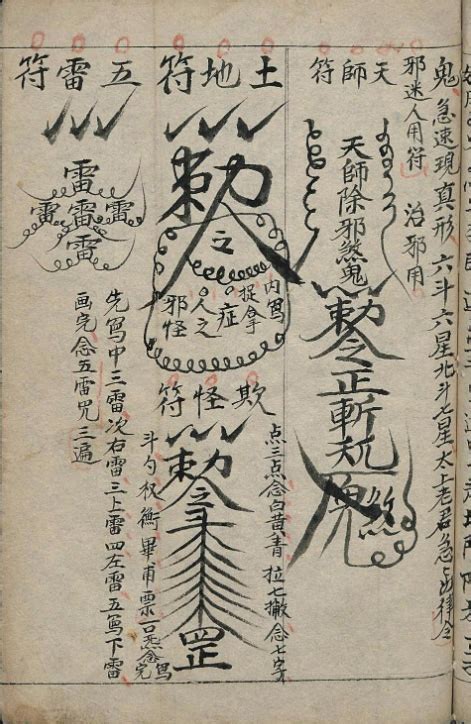 鬼急速現真形六斗六星北斗七星太上老君急急如律令
邪迷人用符 治邪用
天師符
天師除邪煞鬼
勅令正斬
鬼
煞
土地符
勅令
之
内寫
捉拿
症
人之
邪怪
欺怪符
点三点念白黄青 拉七撇念七字
勅令
斗
罡
斗勺权衡畢甫票一口炁
念完
五雷符
雷
雷雷雷
雷
先寫中三雷次右雷三上雷四左雷五寫下雷
画完念五雷咒三遍